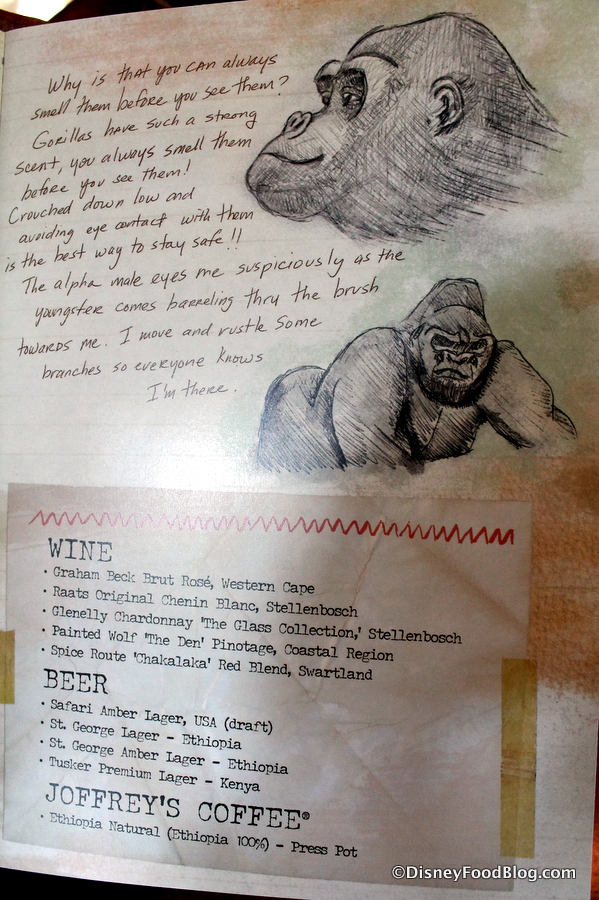 Why is that you can always
smell them before you see them?
Gorillas have such a strong
scent, you always smell them
before you see them!
Crouched down low and
avoiding eye contact with them
is the best way to stay safe!!
The alpha male eyes me suspiciously as the
youngster comes barreling thru the brush
towards me. I move and rustle some
branches so everyone knows
I'm there.
WINE
· Graham Beck Brut Rosé, Western Cape
· Raats Original Chenin Blanc, Stellenbosch
· Glenelly Chardonnay 'The Glass Collection,' Stellenbosch
· Painted Wolf 'The Den' Pinotage, Coastal Region
· Spice Route 'Chakalaka' Red Blend, Swartland
BEER
· Safari Amber Lager, USA (draft)
· St. George Lager - Ethiopia
· St. George Amber Lager - Ethiopia
· Tusker Premium Lager - Kenya
JOFFREY'S COFFEE®
· Ethiopia Natural (Ethiopia 100%) - Press Pot
©DisneyFoodBlog.com